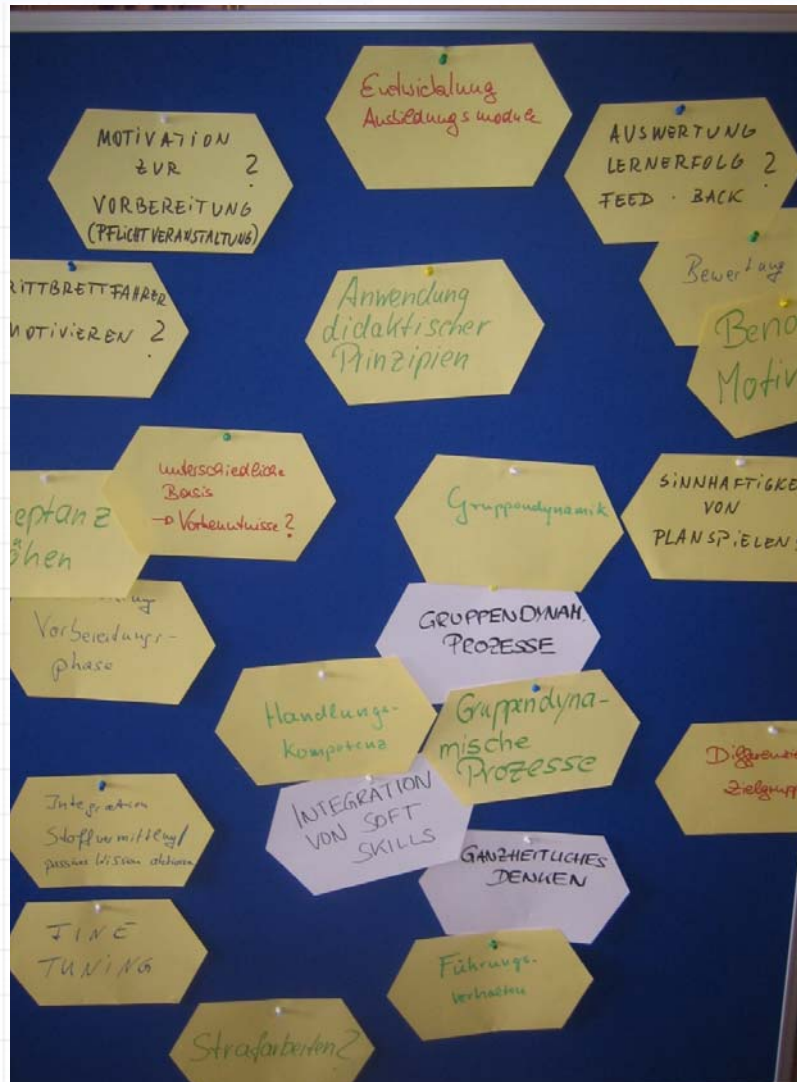 Entwicklung
Ausbildungsmodule
MOTIVATION
ZUR ?
VORBEREITUNG
(PFLICHTVERANSTALTUNG)
AUSWERTUNG
LERNERFOLG ?
FEED . BACK
Bewertung
RITTBRETTFAHRER
MOTIVIEREN ?
Anwendung
didaktischer
Prinzipien
Beno
Motiv
unterschiedliche
Basis
→ Vorkenntnisse ?
eptanz
öhen
Gruppendynamik
SINNHAFTIGKE
VON
PLANSPIELEN
Vorbereitungs-
phase
GRUPPENDYNAM.
PROZESSE
Handlungs-
kompetenz
Gruppendyna-
mische
Prozesse
Differenzie
Zielgrupp
Integration
Stoffvermittlung/
passives Wissen
INTEGRATION
VON SOFT
SKILLS
GANZHEITLICHES
DENKEN
FINE
TUNING
Führungs-
verhalten
Strafarbeiten?